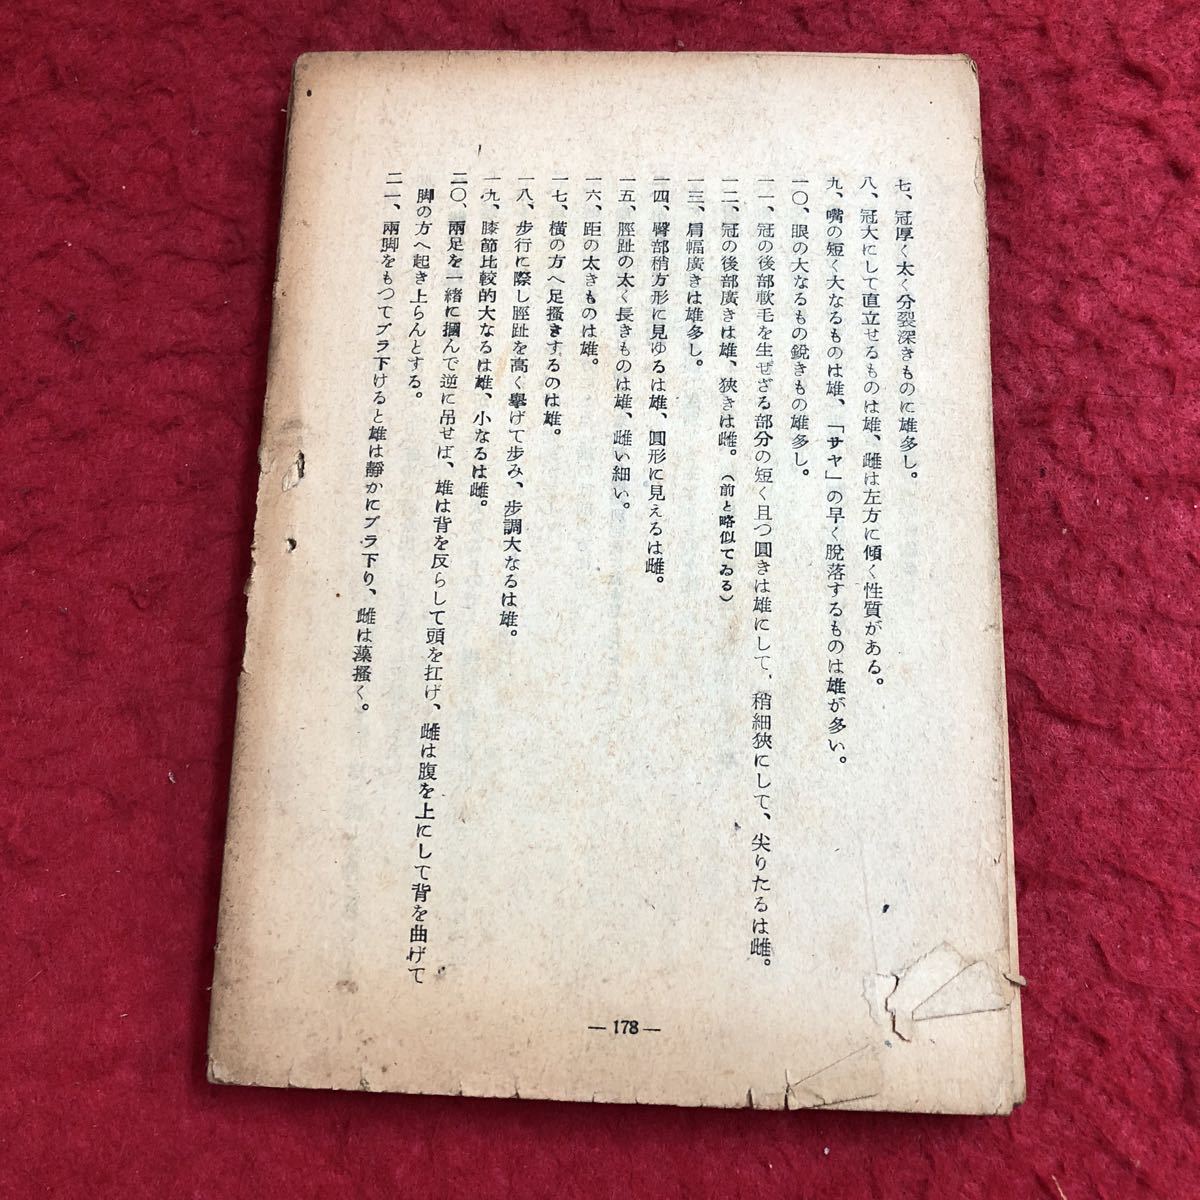 七、冠厚く太く分裂深きものに雄多し。
八、冠大にして直立せるものは雄、雌は左方に傾く性質がある。
九、嘴の短く大なるものは雄、「サヤ」の早く脱落するものは雄が多い。
一〇、眼の大なるもの鋭きもの雄多し。
一一、冠の後部軟毛を生ぜざる部分の短く且つ圓きは雄にして、稍細狹にして、尖りたるは雌。
一二、冠の後部廣きは雄、狹きは雌。(前と略似てゐる)
一三、肩幅廣きは雄多し。
一四、臀部稍方形に見ゆるは雄、圓形に見えるは雌。
一五、脛趾の太く長きものは雄、雌い細い。
一六、距の太きものは雄。
一七、橫の方へ足搔きするのは雄。
一八、步行に際し脛趾を高く擧げて步み、步調大なるは雄。
一九、膝節比較的大なるは雄、小なるは雌。
二〇、兩足を一緒に摑んで逆に吊せば、雄は背を反らして頭を扛げ、雌は腹を上にして背を曲げて
脚の方へ起き上らんとする。
二一、兩脚をもつてブラ下けると雄は靜かにブラ下り、雌は藻搔く。
— 178 —